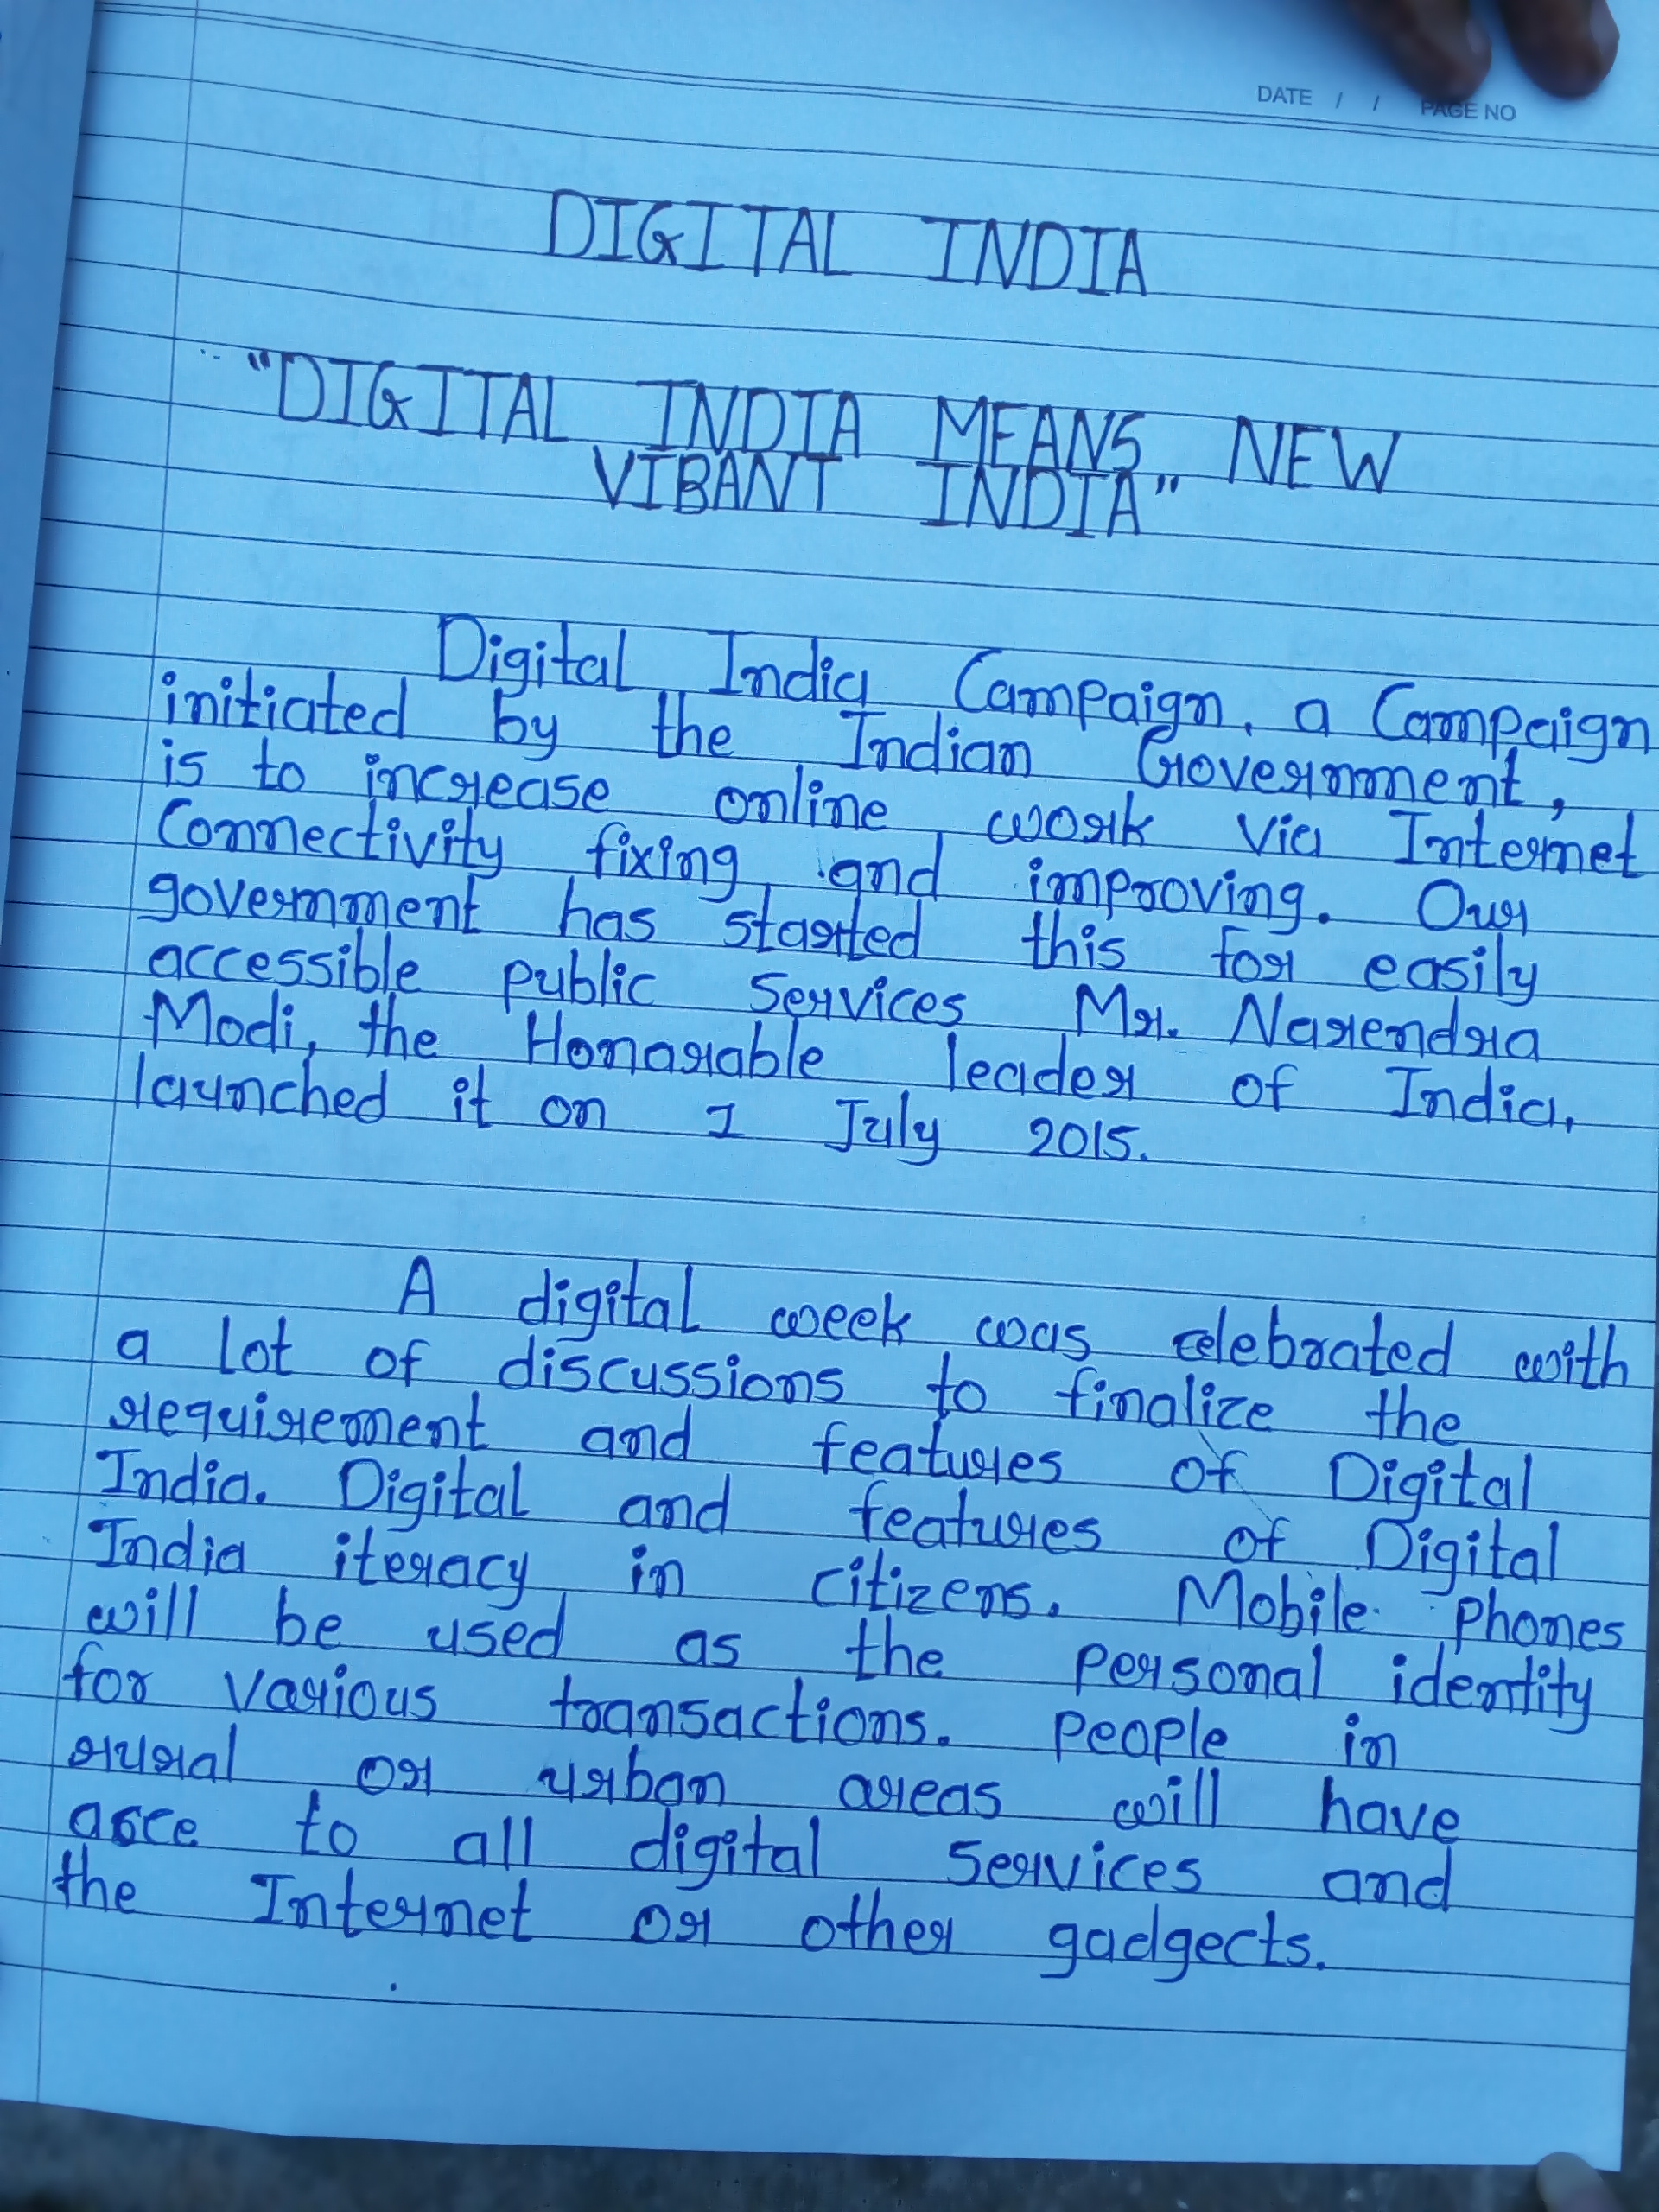 DATE / / PAGE NO
DIGITAL INDIA
"DIGITAL INDIA MEANS NEW
VIBANT INDIA"
Digital India Campaign, a Campaign
initiated by the Indian Government,
is to increase online work via Internet
Connectivity fixing and improving. Our
government has started this for easily
accessible public Services Mr. Narendra
Modi, the Honarable leader of India,
launched it on 1 July 2015.
A digital week was celebrated with
a lot of discussions to finalize the
requirement and features of Digital
India. Digital and features of Digital
India iteracy in citizens. Mobile Phones
will be used as the personal identity
for various transactions. People in
rural or urban areas will have
to all digital Services and
the Internet or other gadgects.